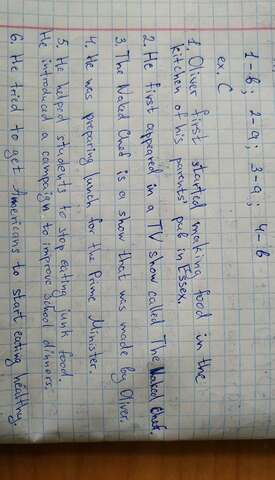 1-b; 2-a; 3-a; 4-b
ex. C
1. Oliver first started making food in the
kitchen of his parents' pub in Essex.
2. He first appeared in a TV show called The Naked Chef.
3. The Naked Chef is a show that was made by Oliver.
4. He was preparing lunch for the Prime Minister.
5. He helped students to stop eating junk food.
He introduced a campaign to improve school dinners.
6. He tried to get Americans to start eating healthy.